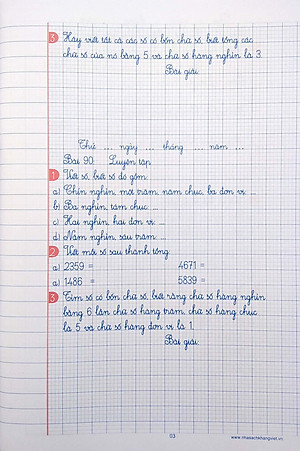 3 Hãy viết tất cả các số có bốn chữ số, biết tổng các
chữ số của nó bằng 5 và chữ số hàng nghìn là 3.
Bài giải:
Thứ ... ngày ... tháng ... năm ...
Bài 90: Luyện tập
1 Viết số, biết số đó gồm:
a) Chín nghìn, một trăm, năm chục, ba đơn vị: ...
b) Ba nghìn, tám chục: ...
c) Hai nghìn, hai đơn vị: ...
d) Năm nghìn, sáu trăm: ...
2 Viết mỗi số sau thành tổng
a) 2359 = 4671 =
a) 1486 = 5839 =
3 Tìm số có bốn chữ số, biết rằng chữ số hàng nghìn
bằng 6 lần chữ số hàng trăm, chữ số hàng chục
là 5 và chữ số hàng đơn vị là 1.
Bài giải:
03 www.nhasachehangviet.vn